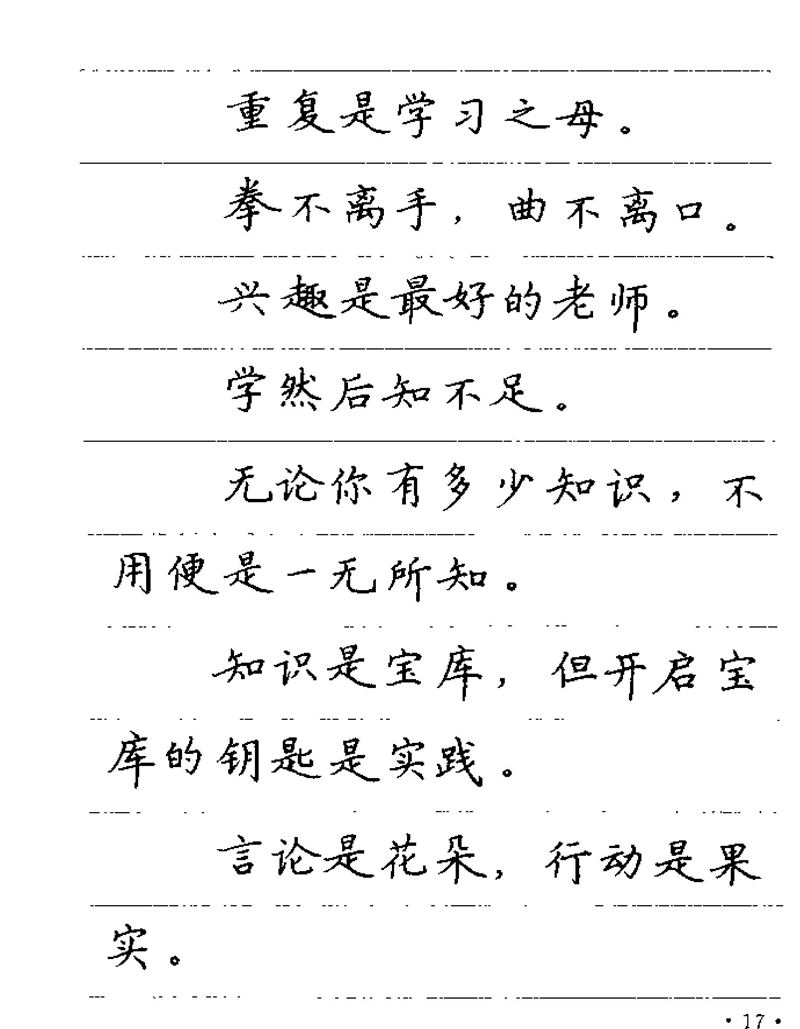 重复是学习之母。
拳不离手，曲不离口。
兴趣是最好的老师。
学然后知不足。
无论你有多少知识，不
用便是一无所知。
知识是宝库，但开启宝
库的钥匙是实践。
言论是花朵，行动是果
实。
·17·